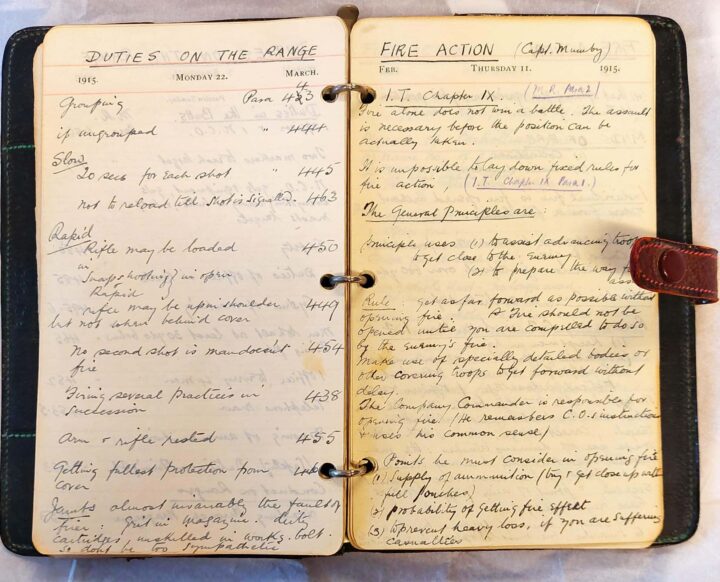 DUTIES ON THE RANGE
1915. MONDAY 22. MARCH.
Grouping Para 443
if ungrouped " 444
Slow
20 secs for each shot " 445
not to reload till shot is signalled. 463
Rapid
Rifle may be loaded 450
in
Snapshooting } in open
Rapid
rifle may be upon shoulder 449
but not when behind cover
No second shot is man doesn't 454
fire
Firing several practices in 438
succession
Arm & rifle rested 455
Getting fullest protection from
cover
Jambs almost invariably the fault of
firer: Grit in magazine. dirty
cartridges, unskilled in workg. bolt.
So dont be too sympathetic
FIRE ACTION (Capt. Mumby)
FEB. THURSDAY 11. 1915.
I.T. Chapter IX. (M.R. Para 2)
Fire alone does not win a battle. The assault
is necessary before the position can be
actually taken.
It is impossible to lay down fixed rules for
fire action, (I.T. Chapter IX Para 1.)
The General Principles are:
Principle uses (1) to assist advancing
to get close to the Enemy
(2) to prepare the way
Rule. get as far forward as possible without
opening fire. Fire should not be
opened until you are compelled to do so
by the Enemy's fire.
Make use of specially detailed bodies or
other covering troops to get forward without
delay.
The Company Commander is responsible for
opening fire (He remembers C.O.s instructions
& uses his common sense)
Points he must consider in opening fire
(1) Supply of ammunition (try & get close up with
full Pouches)
(2) Probability of Getting fire Effect
(3) to prevent heavy loss, if you are suffering
casualties